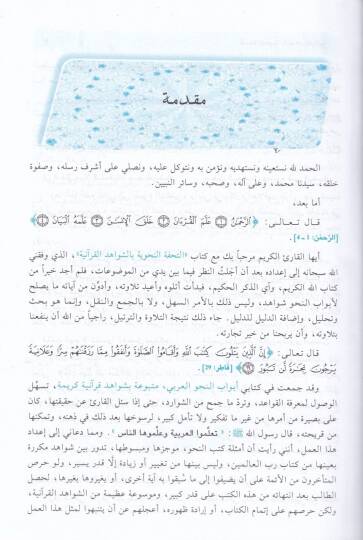 مقدمة
الحمد لله نستعينه ونستهديه ونؤمن به ونتوكل عليه، ونصلي على أشرف رسله، وصفوة
خلقه، سيدنا محمد، وعلى آله، وصحبه، وسائر النبيين.
أما بعد،
قال تعالى: ﴿الرَّحْمَٰنُ ۝ عَلَّمَ الْقُرْءَانَ ۝ خَلَقَ الْإِنسَٰنَ ۝ عَلَّمَهُ الْبَيَانَ ۝﴾
[الرّحمٰن: ١ - ٤].
أيها القارئ الكريم مرحباً بك مع كتاب «التحفة النحوية بالشواهد القرآنية»، الذي وفقني
الله سبحانه إلى إعداده بعد أن أجَلْتُ النظر فيما بين يدي من الموضوعات، فلم أجد خيراً من
كتاب الله الكريم، وآي الذكر الحكيم، فبدأت أتلوه وأعيد تلاوته، وأدوّن من آياته ما يصلح
لأبواب النحو شواهد، وليس ذلك بالأمر السهل، ولا بالجمع والنقل، وإنما هو بحث
وتحليل، وإضافة الدليل للدليل. جاء ذلك نتيجة التلاوة والترتيل، راجياً من الله أن ينفعنا
بتلاوته، وأن يربحنا من خير تجارته.
قال تعالى: ﴿إِنَّ الَّذِينَ يَتْلُونَ كِتَٰبَ اللَّهِ وَأَقَامُوا الصَّلَوٰةَ وَأَنفَقُوا مِمَّا رَزَقْنَٰهُمْ سِرًّا وَعَلَانِيَةً
يَرْجُونَ تِجَٰرَةً لَّن تَبُورَ ۝﴾ [فاطر: 29].
وقد جمعت في كتابي أبواب النحو العربي، متبوعة بشواهد قرآنية كريمة، تسهّل
الوصول لمعرفة القواعد، وتردّ ما جمح من الشوارد، حتى إذا سئل القارئ عن حقيقتها، كان
على بصيرة من أمرها من غير ما تفكير ولا تأمل كبير، لرسوخها بعد ذلك في ذهنه، وتمكنها
من قريحته، قال رسول الله ﷺ: «تعلّموا العربية وعلّموها الناس». ومما دعاني إلى إعداد
هذا العمل، أنني رأيت أن أمثلة كتب النحو، موجزها ومبسوطها، تدور بين شواهد مكررة
بعينها من كتاب رب العالمين، وليس بينها من تغيير أو زيادة إلّا قدر يسير، ولو حرص
المتأخرون من الأئمة على أن يضيفوا إلى ما سُبقوا به آية أخرى، أو يغيروها بغيرها، لحصل
الطالب بعد انتهائه من هذه الكتب على قدر كبير، وموسوعة عظيمة من الشواهد القرآنية،
ولكن حرصهم على إتمام الكتاب، أو إرادة ظهوره، أعجلهم عن أن يتنبهوا لمثل هذا العمل